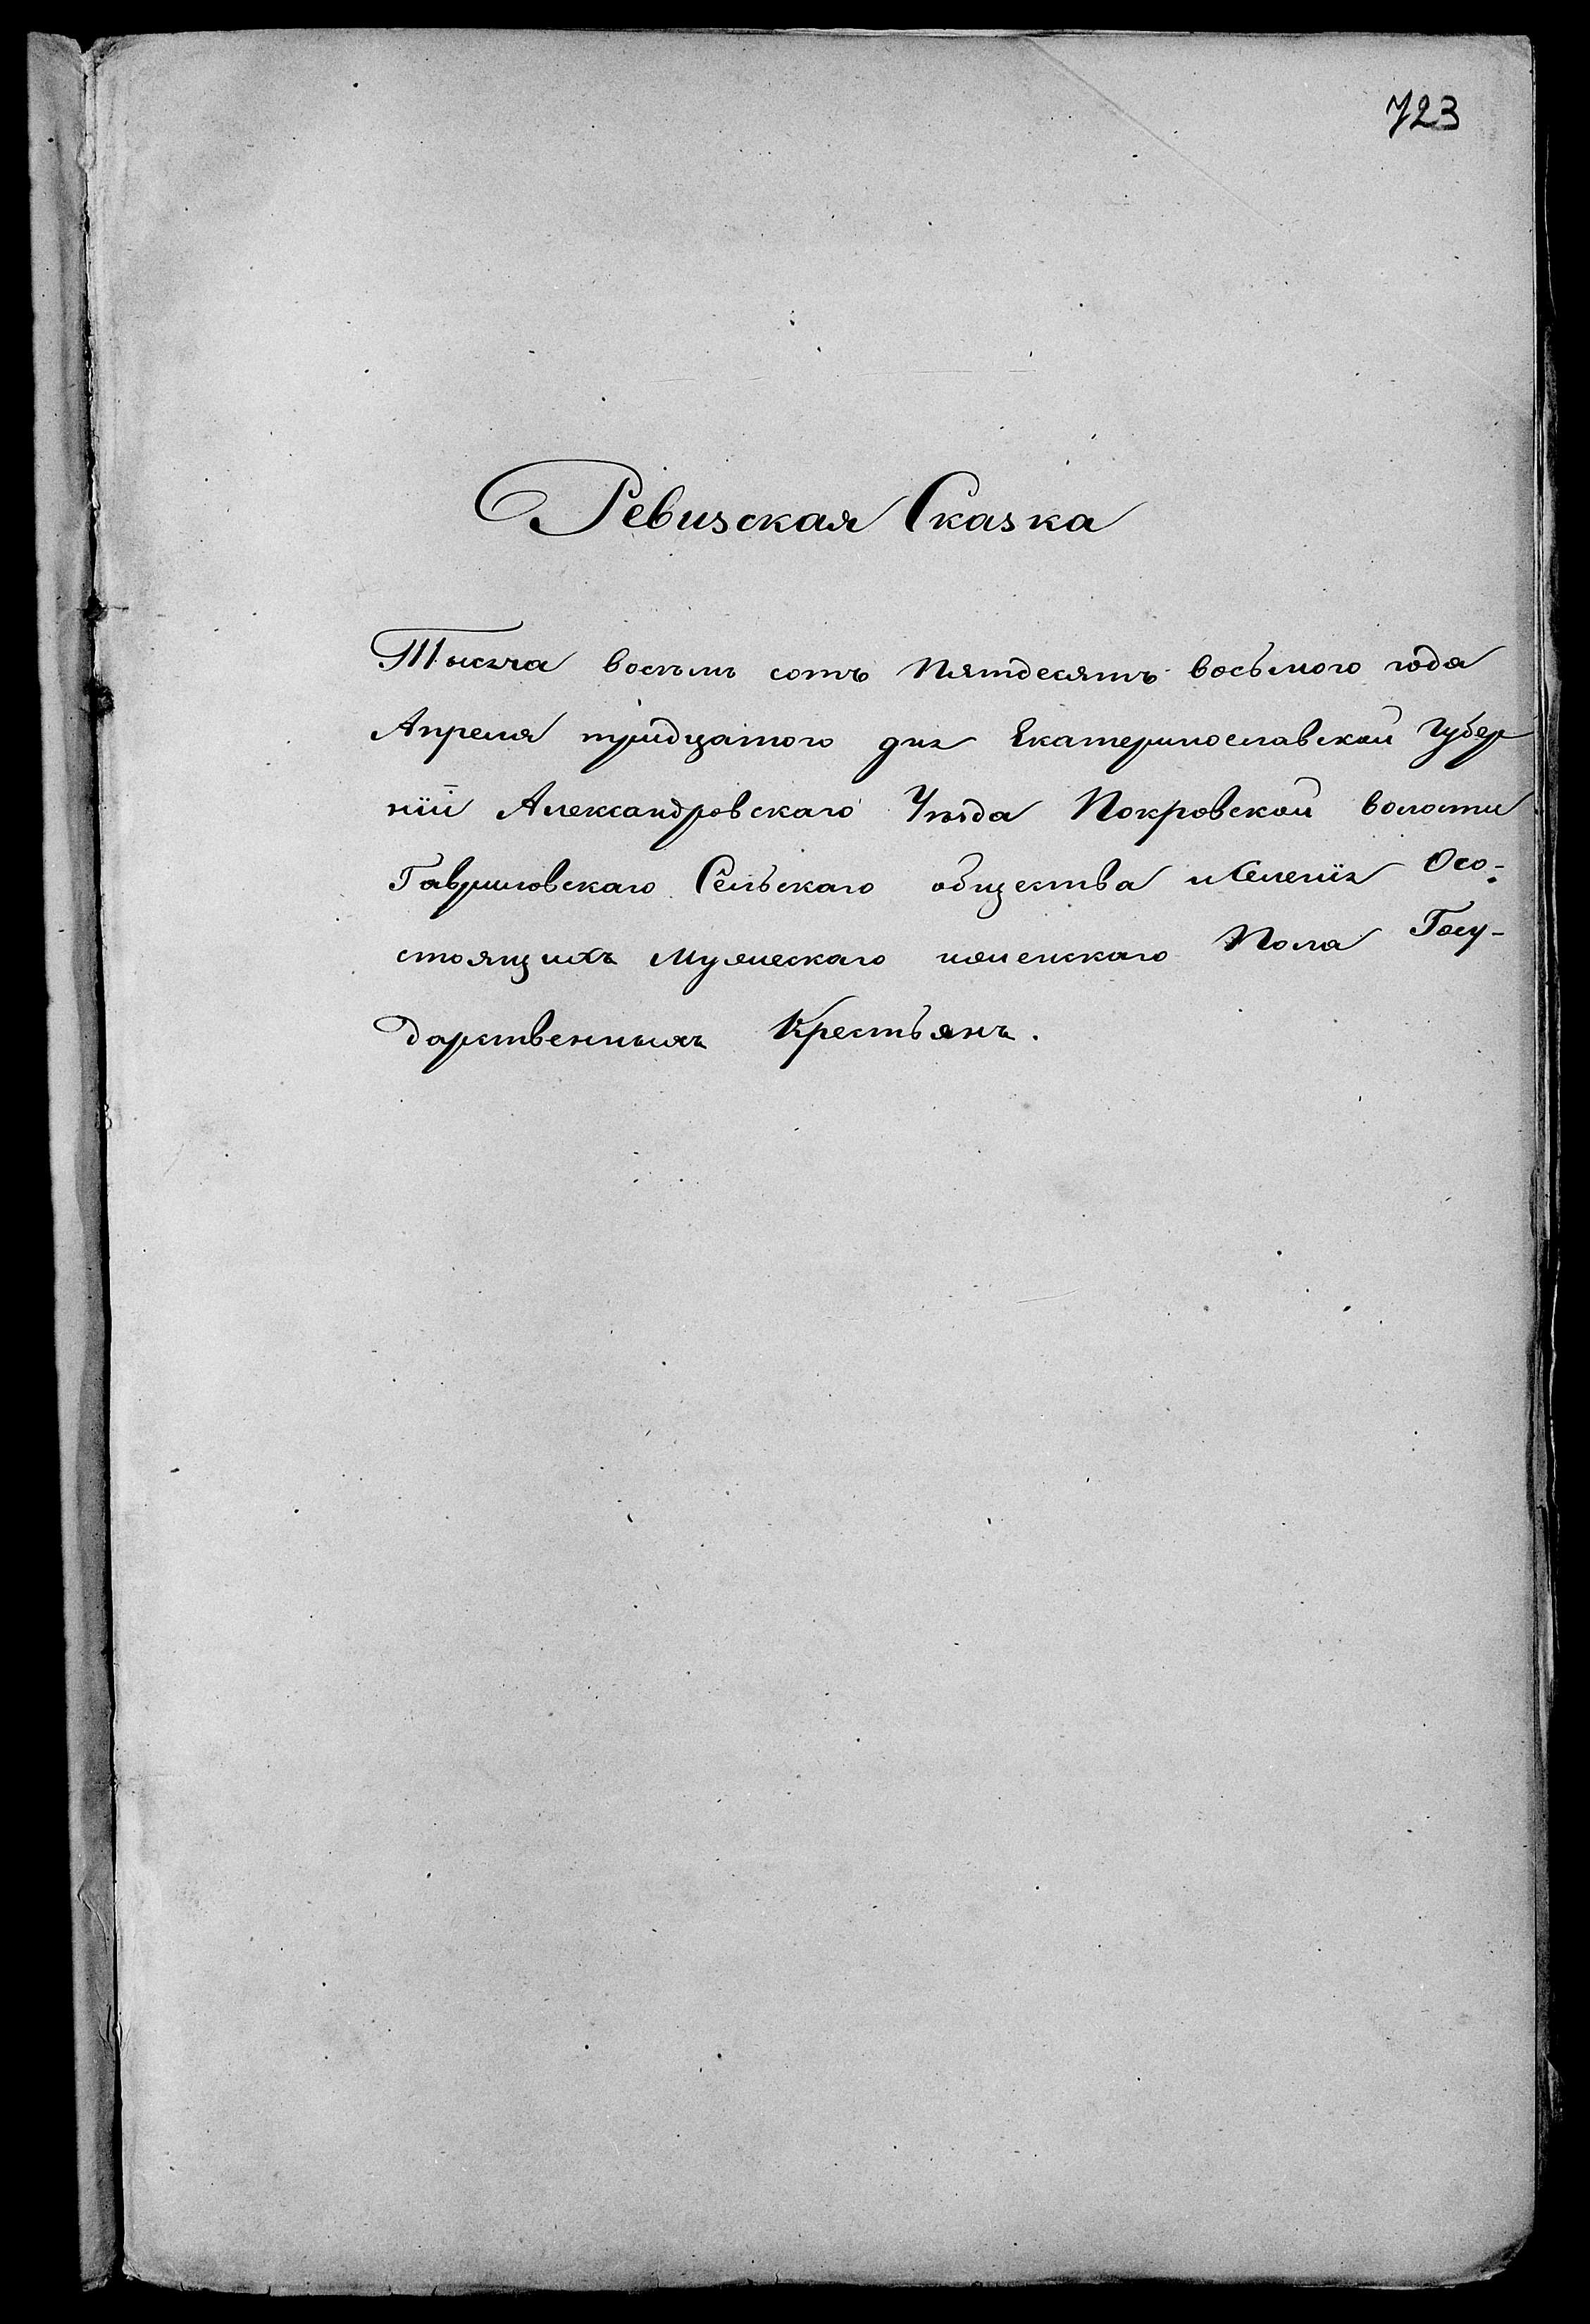 723
Ревизская Сказка
Тысяча восемь сотъ Пятдесятъ восьмого года
Апреля тридцатого дня Екатеринославской Губер
нiи Александровскаго Уѣзда Покровской волости
Гавриловскаго Сельскаго общества и Селенiя Осо-
стоящихъ Мужескаго и женскаго Пола Госу-
дарственныхъ Крестьянъ.